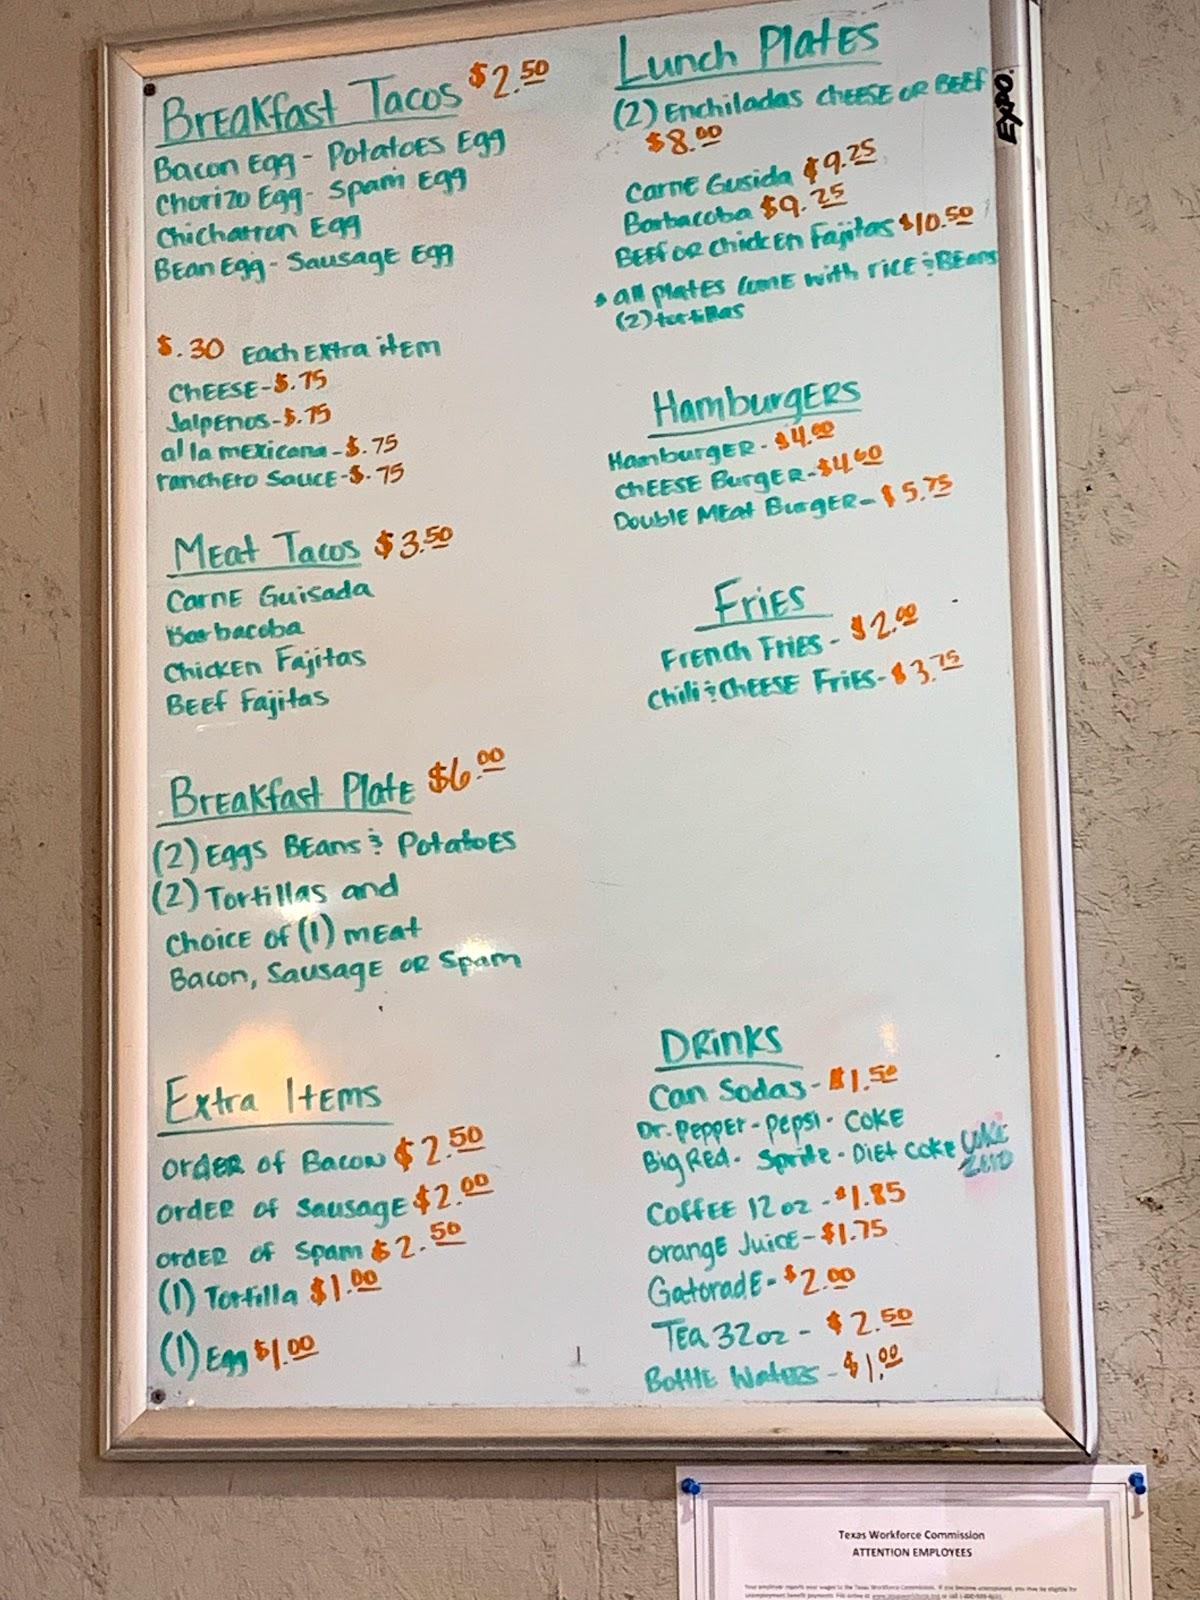 Breakfast Tacos $2.50
Bacon Egg - Potatoes Egg
Chorizo Egg - Spam Egg
Chicharron Egg
Bean Egg - Sausage Egg
$.30 Each Extra item
Cheese - $.75
Jalpenos - $.75
al la mexicana - $.75
ranchero Sauce - $.75
Meat Tacos $3.50
Carne Guisada
Barbacoba
Chicken Fajitas
Beef Fajitas
Breakfast Plate $6.00
(2) Eggs Beans & Potatoes
(2) Tortillas and
choice of (1) meat
Bacon, Sausage or Spam
Extra Items
order of Bacon $2.50
order of Sausage $2.00
order of Spam $2.50
(1) Tortilla $1.00
(1) Egg $1.00
Lunch Plates
(2) Enchiladas cheese or Beef
$8.00
Carne Gusida $9.25
Barbacoba $9.25
Beef or Chicken Fajitas $10.50
* all plates come with rice & Beans
(2) tortillas
Hamburgers
Hamburger - $4.00
Cheese Burger - $4.60
Double Meat Burger - $5.75
Fries
French Fries - $2.00
Chili & Cheese Fries - $3.75
Drinks
Can Sodas - $1.50
Dr. Pepper - Pepsi - Coke
Big Red - Sprite - Diet Coke Coke
Zero
Coffee 12 oz - $1.85
orange Juice - $1.75
Gatorade - $2.00
Tea 32oz - $2.50
Bottle Waters - $1.00
EXPO.
Texas Workforce Commission
ATTENTION EMPLOYEES